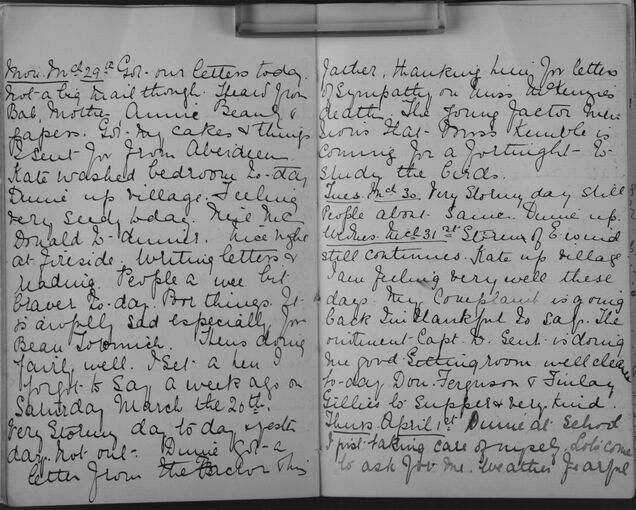 Mon. Mch 29th Got our letters today.
Not a big mail though. Heard from
Bab, Mother, Annie Beauly &
papers. Got my cakes & things
I sent for from Aberdeen.
Kate washed bedroom to-day
Dunie up village. Feeling
very seedy today. Neil Mc
Donald to dinner. Nice night
at fireside. Writing letters &
reading. People a wee bit
braver to-day Poor things. It
is awfully sad especially for
Bean. Hens doing
fairly well. I set a hen I
forgot to say a week ago on
Saturday March the 20th.
Very Stormy day to day & yester
day. Not out. Dunie got a
letter from the Factor this
father, thanking him for letters
of Sympathy on Miss McKenzies
death. The young factor men
sions that Miss Kemble is
coming for a fortnight to
study the birds.
Tues. Mch 30. Very Stormy day still
People about same. Dunie up.
Wednes. Mch 31st Storm of E wind
still continues. Kate up village
I am feeling very well these
days. My Complaint is going
back I'm thankful to say. The
ointment Capt. W. Sent is doing
me good. Sitting room well cleaned
to-day. Don. Ferguson & Finlay
Gillies to supper & very kind.
Thurs. April 1st Dunie at School
I just taking care of myself. Lots come
to ask for me. Weather fearful